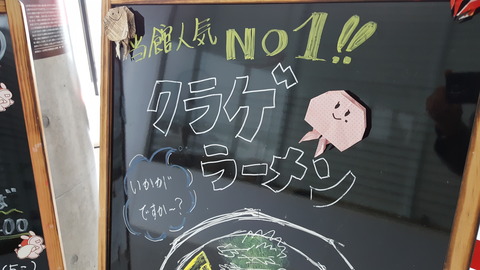 当館人気 NO1!!
クラゲ
ラーメン
いかが
ですか〜?
.00